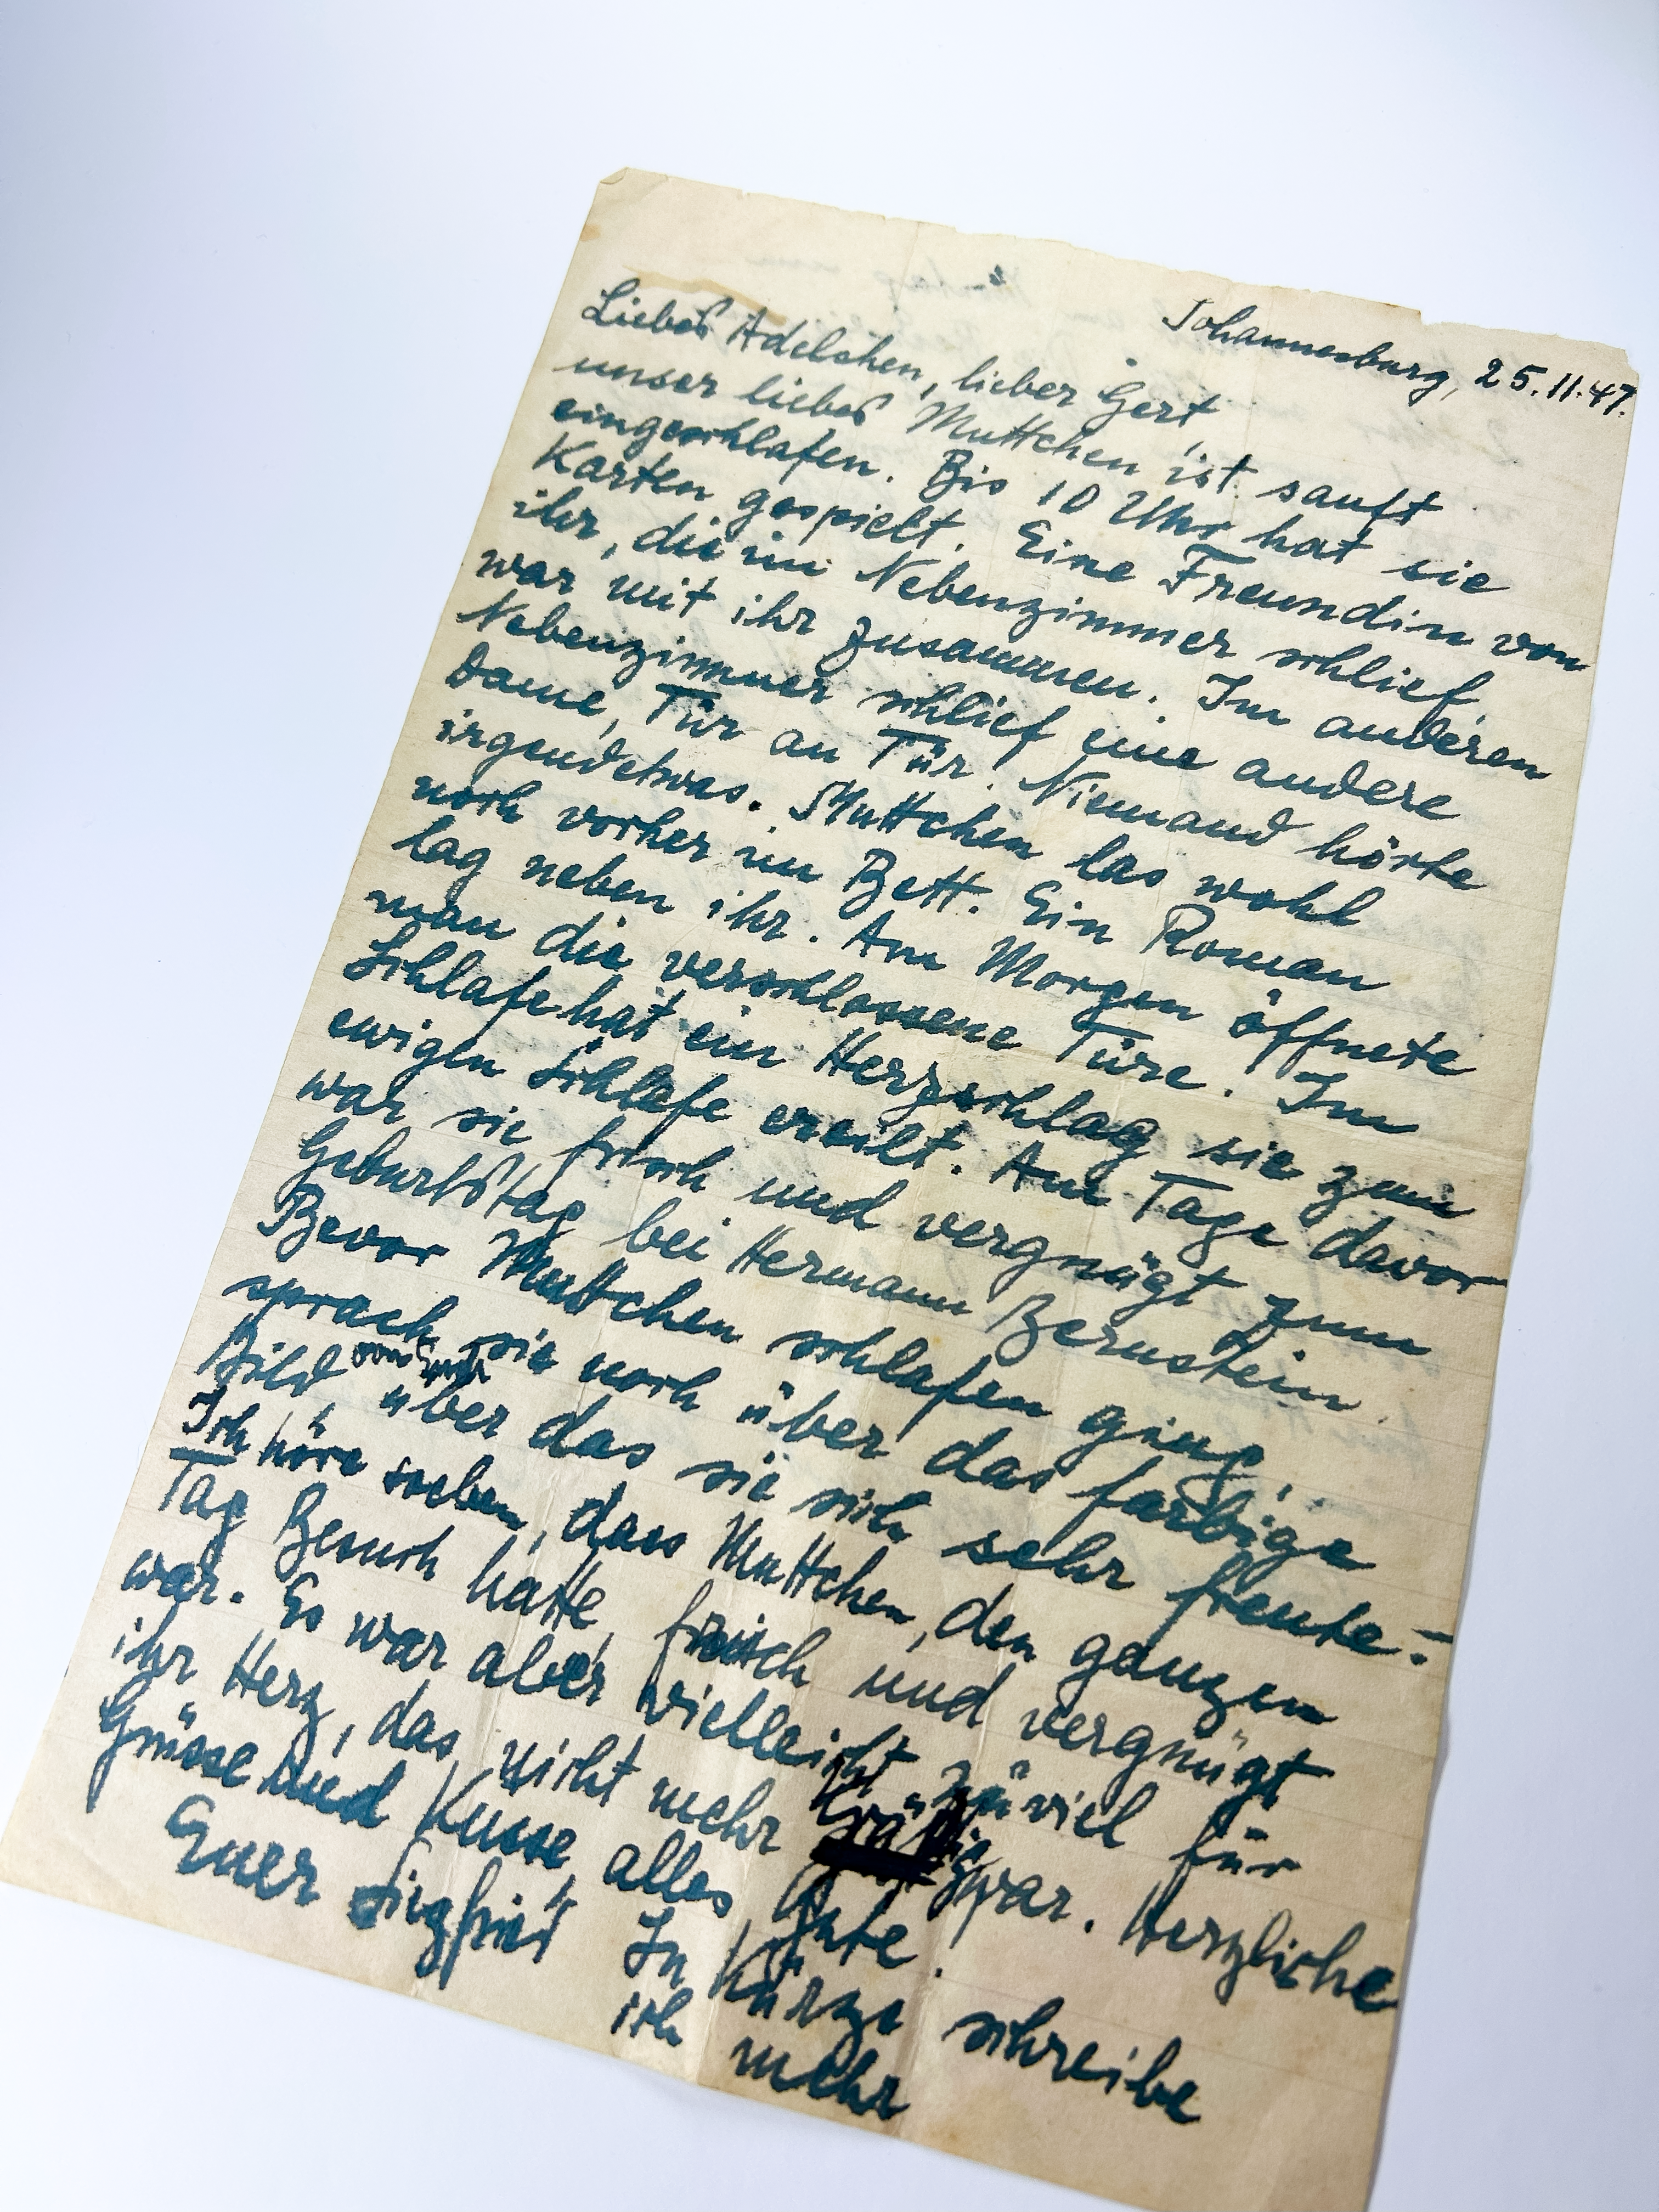 Johannesburg, 25.11.47.
Liebes Adelchen, lieber Gert
unser liebes Muttchen ist sanft
eingeschlafen. Bis 10 Uhr hat sie
Karten gespielt. Eine Freundin von
ihr, die im Nebenzimmer schlief,
war mit ihr zusammen. Im anderen
Nebenzimmer schlief eine andere
Dame, Tür an Tür. Niemand hörte
irgendetwas. Muttchen las wohl
noch vorher im Bett. Ein Roman
lag neben ihr. Am Morgen öffnete
man die verschlossene Türe. Im
Schlafe hat ein Herzschlag sie zum
ewigen Schlafe ereilt. Am Tage davor
war sie frisch und vergnügt zum
Geburtstag bei Hermann Bernstein.
Bevor Muttchen schlafen ging,
sprach sie noch über das farbige
Bild von über das sie sich sehr freute.-
Ich höre soeben, dass Muttchen, den ganzen
Tag Besuch hatte, frisch und vergnügt
war. Es war aber vielleicht zuviel für
ihr Herz, das nicht mehr war. Herzliche
Grüsse und Küsse, alles Gute.
Euer Siegfried In Kürze schreibe
ich mehr